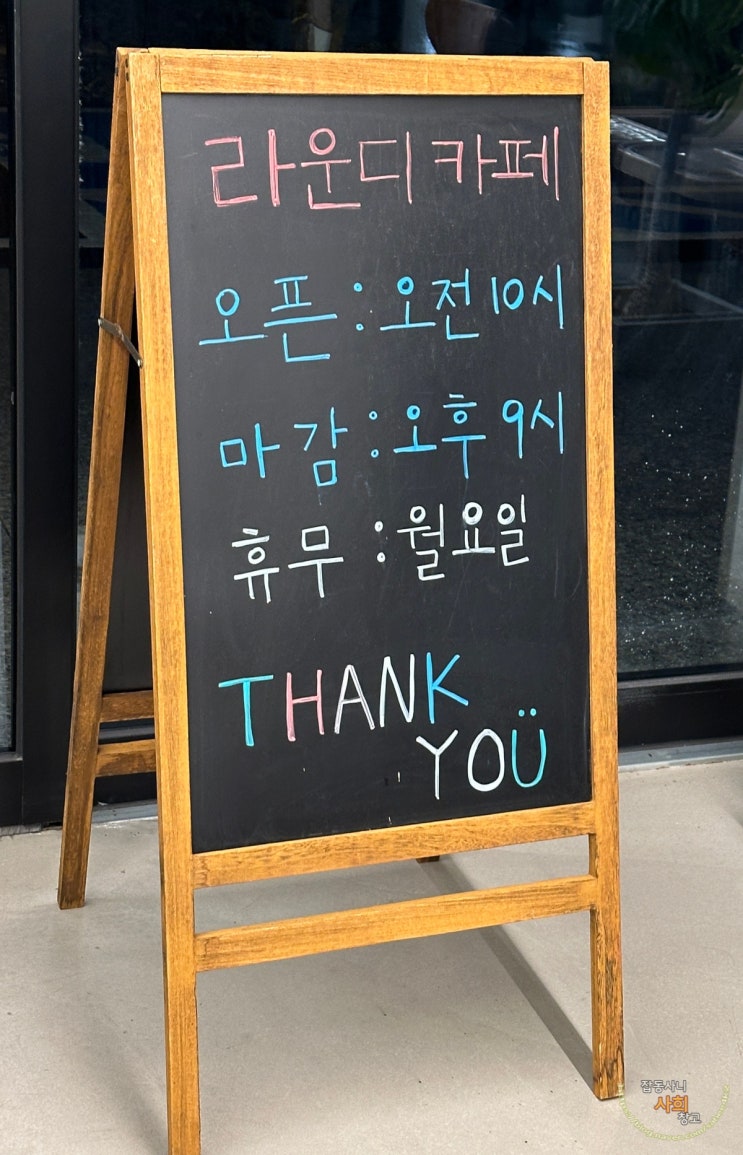 라운디 카페
오픈 : 오전 10시
마감 : 오후 9시
휴무 : 월요일
THANK
YOÜ
잡동사니
사회
창고